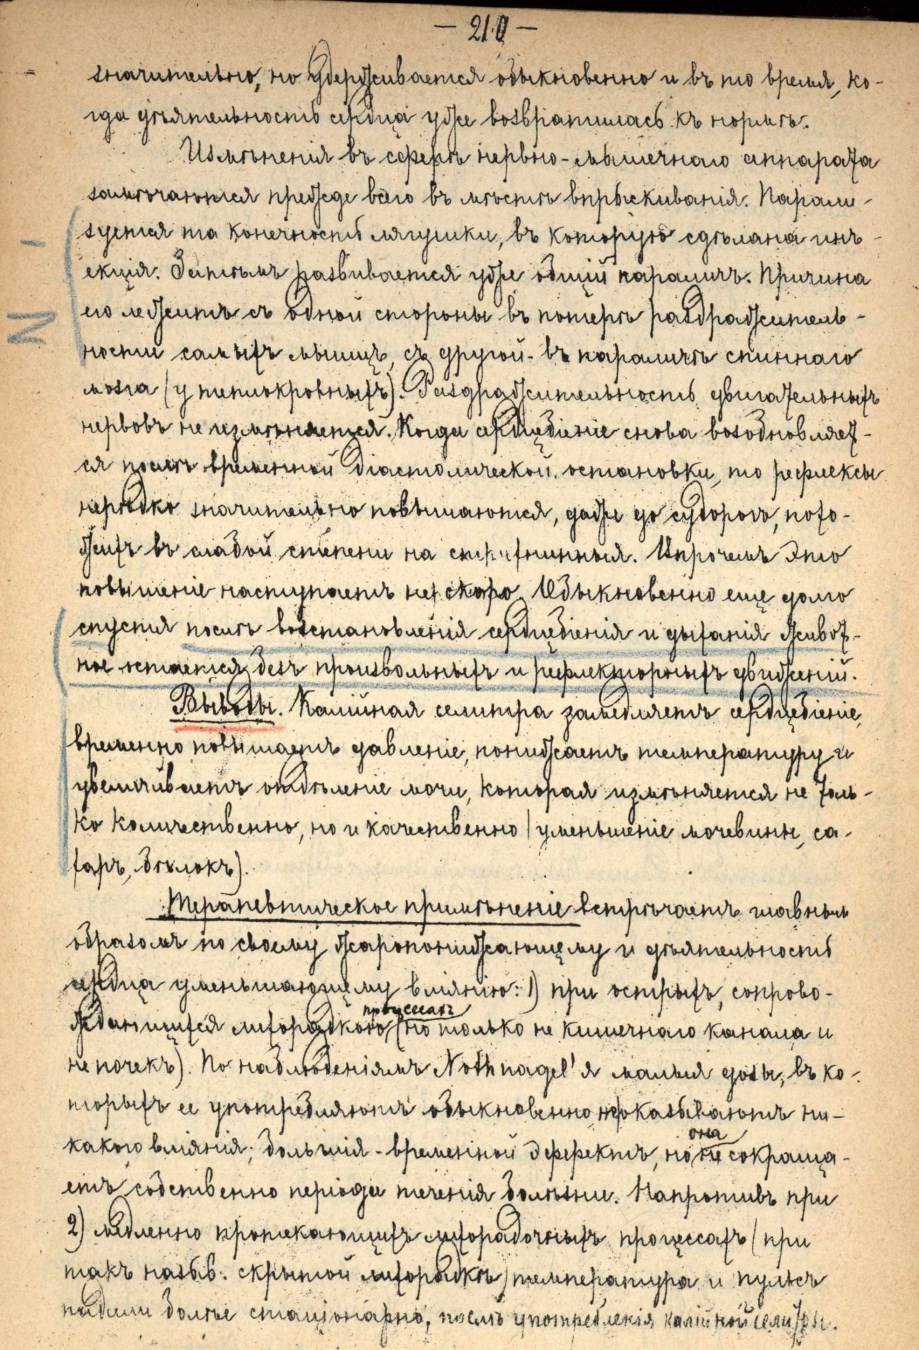 — 210 —
значительно, но удерживается обыкновенно и въ то время, ко-
гда дѣятельность сердца уже возвратилась къ нормѣ.
Измѣненія въ сферѣ нервно-мышечнаго аппарата
замѣчаются прежде всего въ мѣстѣ впрыскиванія. Парали-
зуется та конечность лягушки, въ которую сдѣлана инъ-
екція. Затѣмъ развивается уже общій параличъ. Причина
его лежитъ съ одной стороны въ потерѣ раздражитель-
ности самыхъ мышцъ, съ другой - въ параличѣ спиннаго
мозга (у теплокровныхъ). Раздражительность двигательныхъ
нервовъ не измѣняется. Когда сердцебіеніе снова возобновляет-
ся послѣ временной діастолической остановки, то рефлексы
нерѣдко значительно повышаются, даже до судорогъ, похо-
жихъ въ слабой степени на стрихнинныя. Впрочемъ это
повышеніе наступаетъ не скоро. Обыкновенно еще долго
спустя послѣ возстановленія сердцебіенія и дыханія живот-
ное остается безъ произвольныхъ и рефлекторныхъ движеній.
Выводы. Калійная селитра замедляетъ сердцебіеніе,
временно повышаетъ давленіе, понижаетъ температуру и
увеличиваетъ отдѣленіе мочи, которая измѣняется не толь-
ко количественно, но и качественно (уменьшеніе мочевины, са-
харъ, бѣлокъ).
Терапевтическое примѣненіе встрѣчаетъ главным
образомъ по своему жаропонижающему и дѣятельность
сердца уменьшающему вліянію: 1) при острыхъ, сопрово-
процессахъ
ждающихся лихорадкою (но только не кишечнаго канала и
не почекъ). По наблюденіямъ Nothnagel'я малыя дозы, въ ко-
торыхъ ее употребляютъ обыкновенно не оказываютъ ни-
она
какого вліянія; большія - временной эффектъ, но не сокраща-
етъ собственно періода теченія болѣзни. Напротивъ при
2) медленно протекающихъ лихорадочныхъ процессахъ (при
такъ назыв. скрытой лихорадкѣ) температура и пульсъ
падали болѣе стаціонарно, послѣ употребленія калійной селитры.